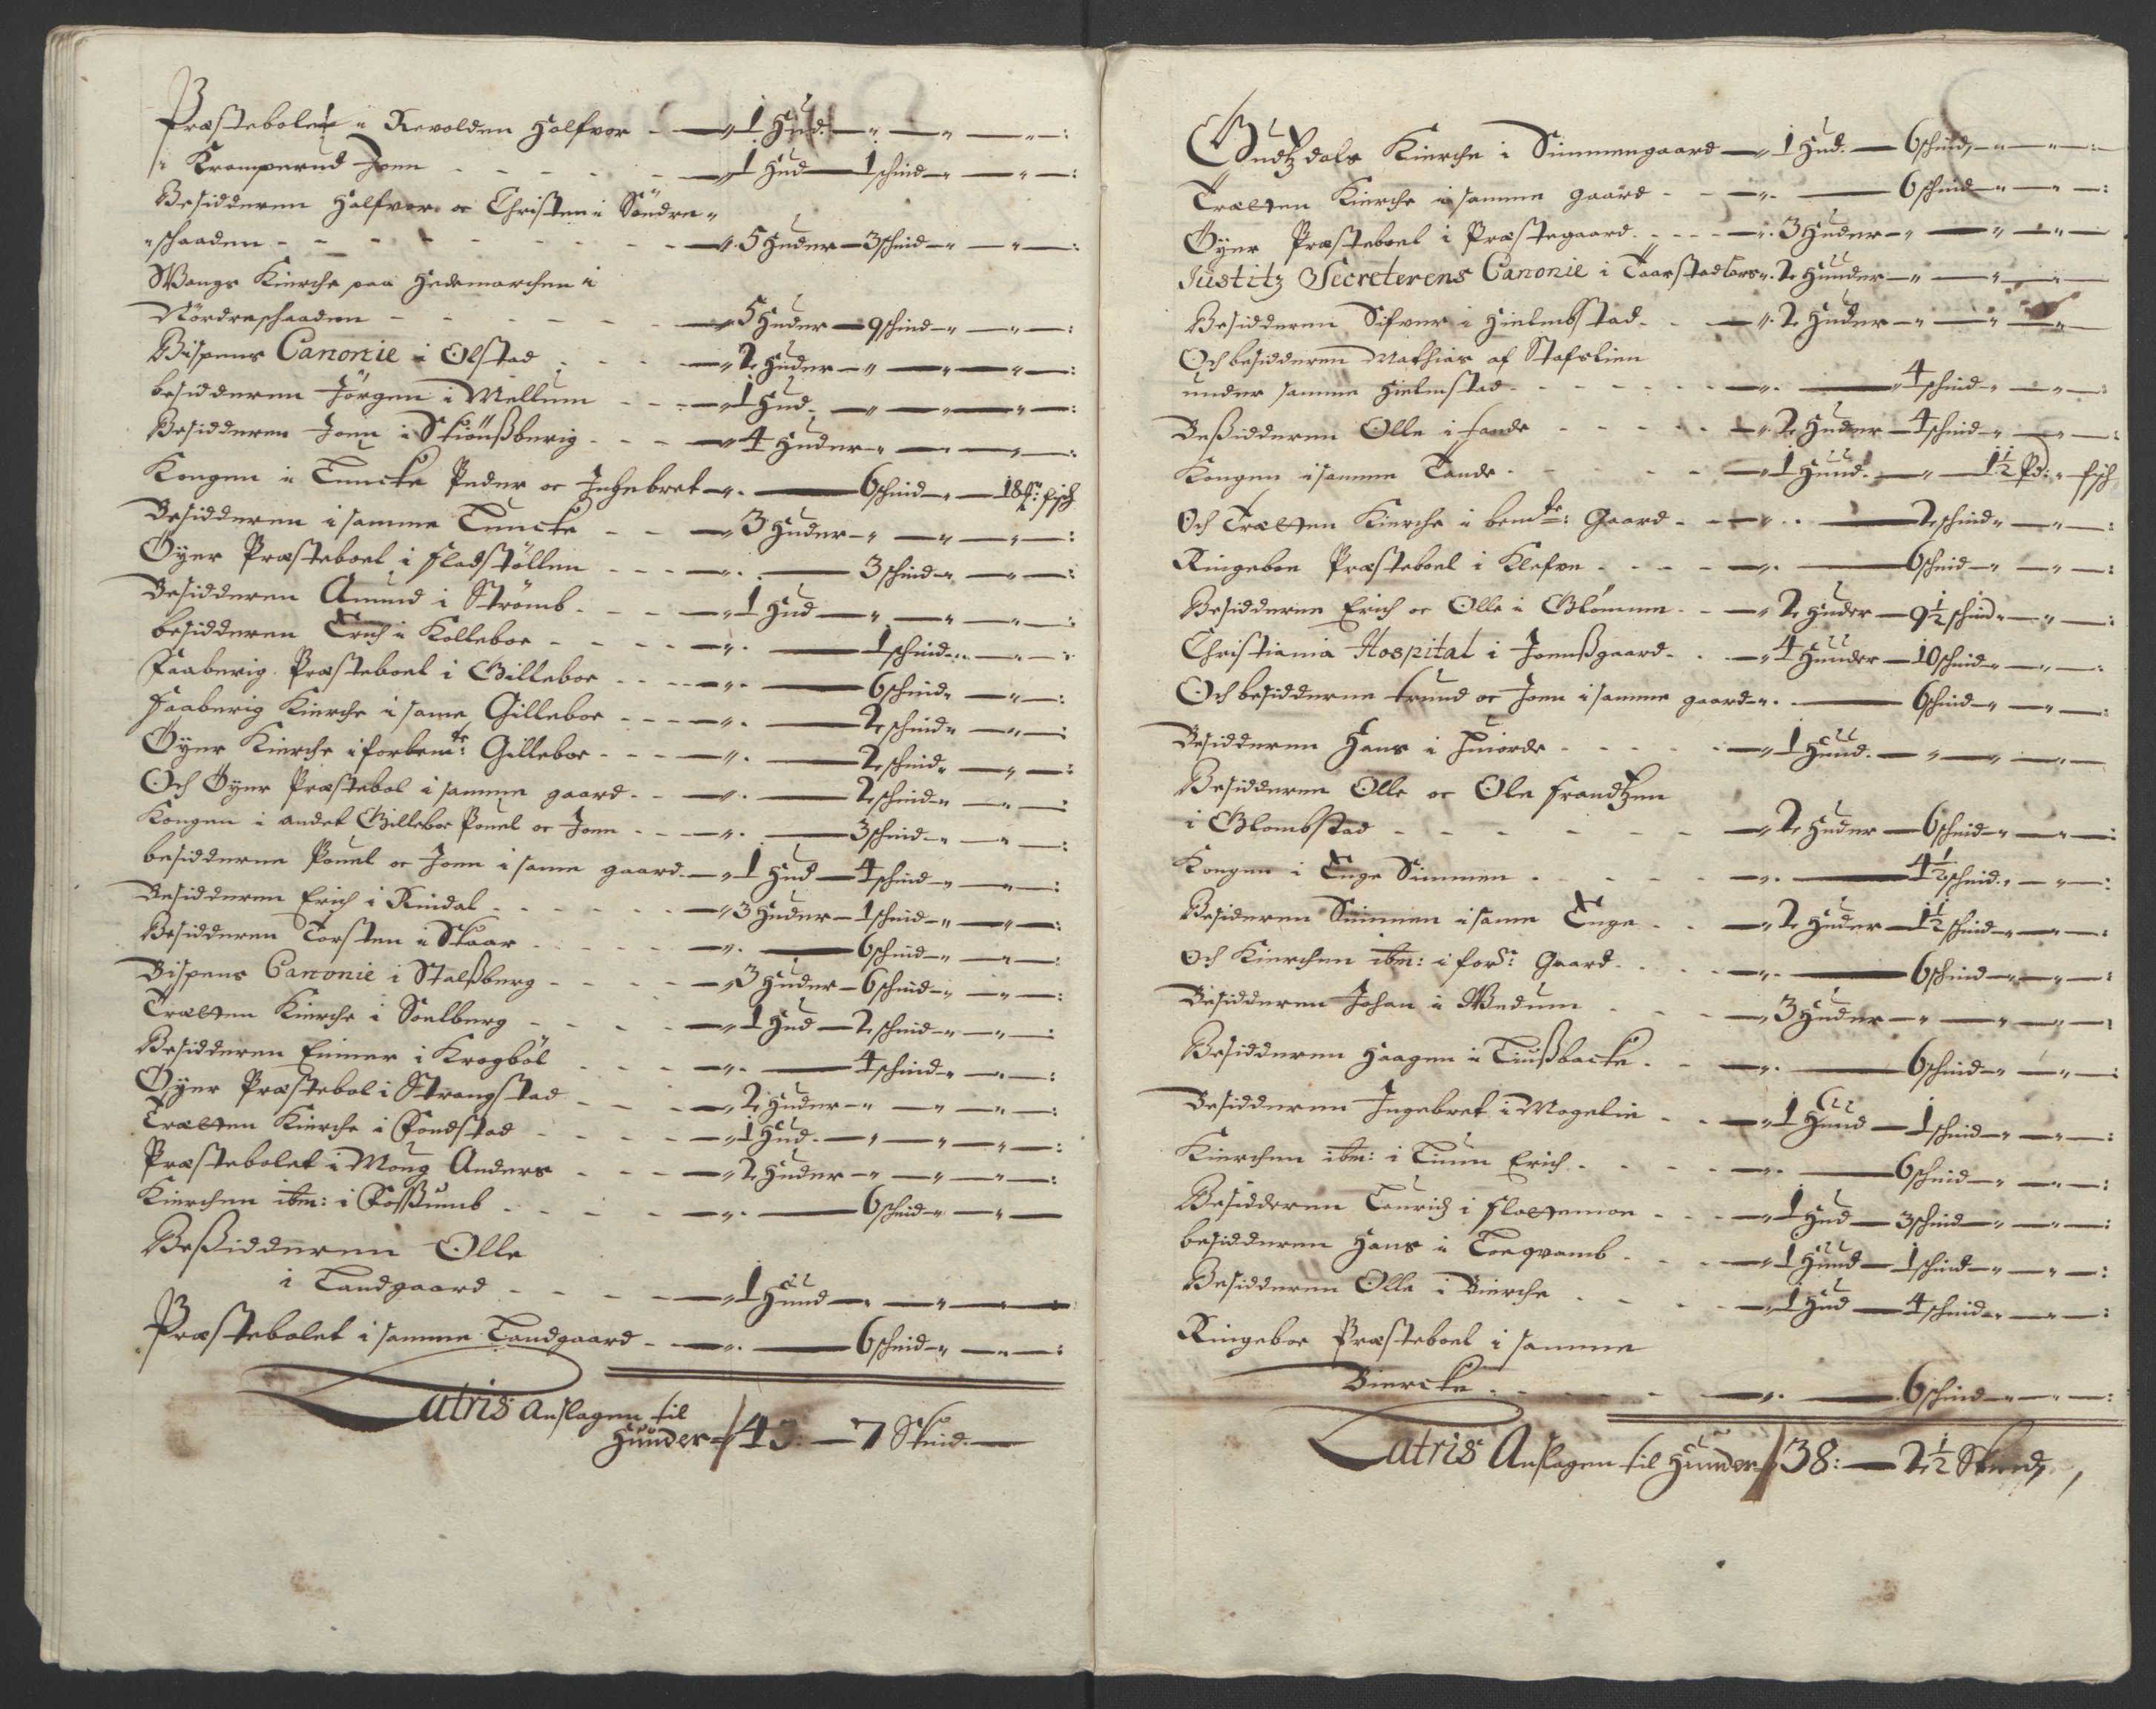 Præstebolet i Revolden Halfvor - 1 Hud
i Kramperud Joen - 1 Hud - 1 schind
Besidderen Halfvor oc Christen i Söndre
schaaden - 5 Huder - 3 schind
Wangs Kierche paa Hedemarchen i
Nördreschaaden - 5 Huder - 9 schind
Bispens Canonie i Olstad - 2 Huder
besidderen Jörgen i Mellum - 1 Hud
Besidderen Joen i Skiönßberig - 4 Huder
Kongen i Tuncke Peder oc Ingebret - 6 schind - 18 fisch
Besidderen i samme Tuncke - 3 Huder
Öyer Præsteboel i Fladstöllen - 3 schind
Besidderen Amund i Strömb - 1 Hud
besidderen Erich i Kolleboe - 1 schind
Faaberig Præsteboel i Gilleboe - 6 schind
Faaberig Kierche i same Gilleboe - 2 schind
Öyer Kierche i forbemte: Gilleboe - 2 schind
Och Öyer Præstebol i samme gaard - 2 schind
Kongen i andet Gilleboe Pouel oc Joen - 3 schind
besidderne Pouel oc Joen i same gaard - 1 Hud - 4 schind
Besidderen Erich i Rindal - 3 Huder - 1 schind
Besidderen Torsten i Skaar - 6 schind
Bispens Canonie i Stalßberg - 3 Huder - 6 schind
Trætten Kierche i Soelberg - 1 Hud - 2 schind
Besidderen Einner i Krogböl - 4 schind
Öyer Præstebol i Strangstad - 2 Huder
Trætten Kierche i Fondstad - 1 Hud
Præstebolet i Moug Anders - 2 Huder
Kierchen ibm: i Foßumb - 6 schind
Beßidderen Olle
i Tandgaard - 1 Hund
Præstebolet i samme Tandgaard - 6 schind
Latris Anslagen til
Hunder 43: - 7 Skind
Gudtzdals Kierche i Simmengaard - 1 Hud - 6 schind
Trætten Kierche i samme gaard - 6 schind
Öyer Præsteboel i Præstegaard - 3 Huder
Justitz Secreterens Canonie i Taarstad Lars - 2 Hunder
Besidderen Sifver i Hielmbstad - 2 Huder
Och besidderen Mathias af Stafslien
under samme Hielmstad - 4 schind
Beßidderen Olle i Tande - 2 Huder - 4 schind
Kongen i samme Tande - 1 Hund - 1½ Pd: fisch
Och Trætten Kierche i bemte: Gaard - 2 schind
Ringeboe Præsteboel i Klefve - 6 schind
Besidderne Erich oc Olle i Glömme - 2 Huder - 9½ schind
Christiania Hospital i Joenßgaard - 4 Hunder - 10 schind
Och besidderne trund oc Joen i samme gaard - 6 schind
Besidderen Hans i - 1 Hund
Besidderen Olle oc Ole Frandtzen
i Glombstad - 2 Huder - 6 schind
Kongen i Enge Simmen - 4½ schind
Besideren Simmen i same Enge - 2 Huder - 1½ schind
Och Kierchen ibm: i for: Gaard - 6 schind
Besidderen Johan i Wedum - 3 Huder
Besidderen Haagen i Tiußbacke - 6 schind
Besidderen Ingebret i Mogelie - 1 Hund - 1 schind
Kierchen ibm: i Tiuen Erich - 6 schind
Besidderen Lauridz i Flattemoe - 1 Hud - 3 schind
besidderen Hans i - 1 Hund - 1 schind
Besidderen Olle i Bierche - 1 Hud - 4 schind
Ringeboe Præsteboel i samme
Biercke - 6 schind
Latris Anslagen til Hunder 38: - 2½ Skind